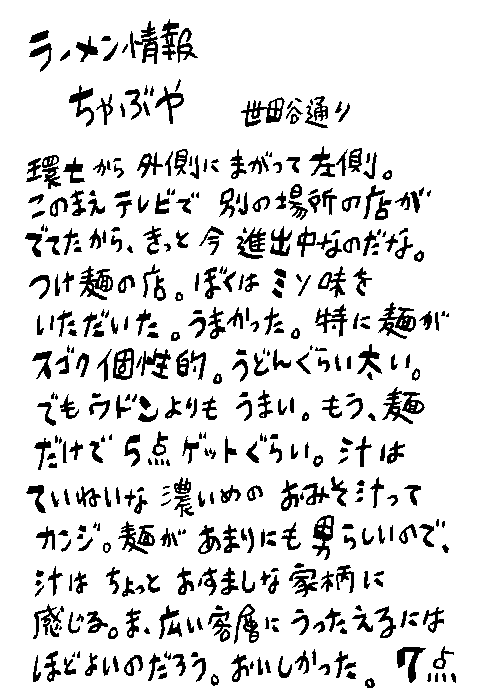 ラーメン情報
ちゃぶや 世田谷通り
環七から外側にまがって左側。
このまえテレビで別の場所の店が
でてたから、きっと今進出中なのだな。
つけ麺の店。ぼくはミソ味を
いただいた。うまかった。特に麺が
スゴク個性的。うどんぐらい太い。
でもウドンよりもうまい。もう、麺
だけで5点ゲットぐらい。汁は
ていねいな濃いめのおみそ汁って
カンジ。麺があまりにも男らしいので、
汁はちょっとおすましな家柄に
感じる。ま、広い客層にうったえるには
ほどよいのだろう。おいしかった。 7点